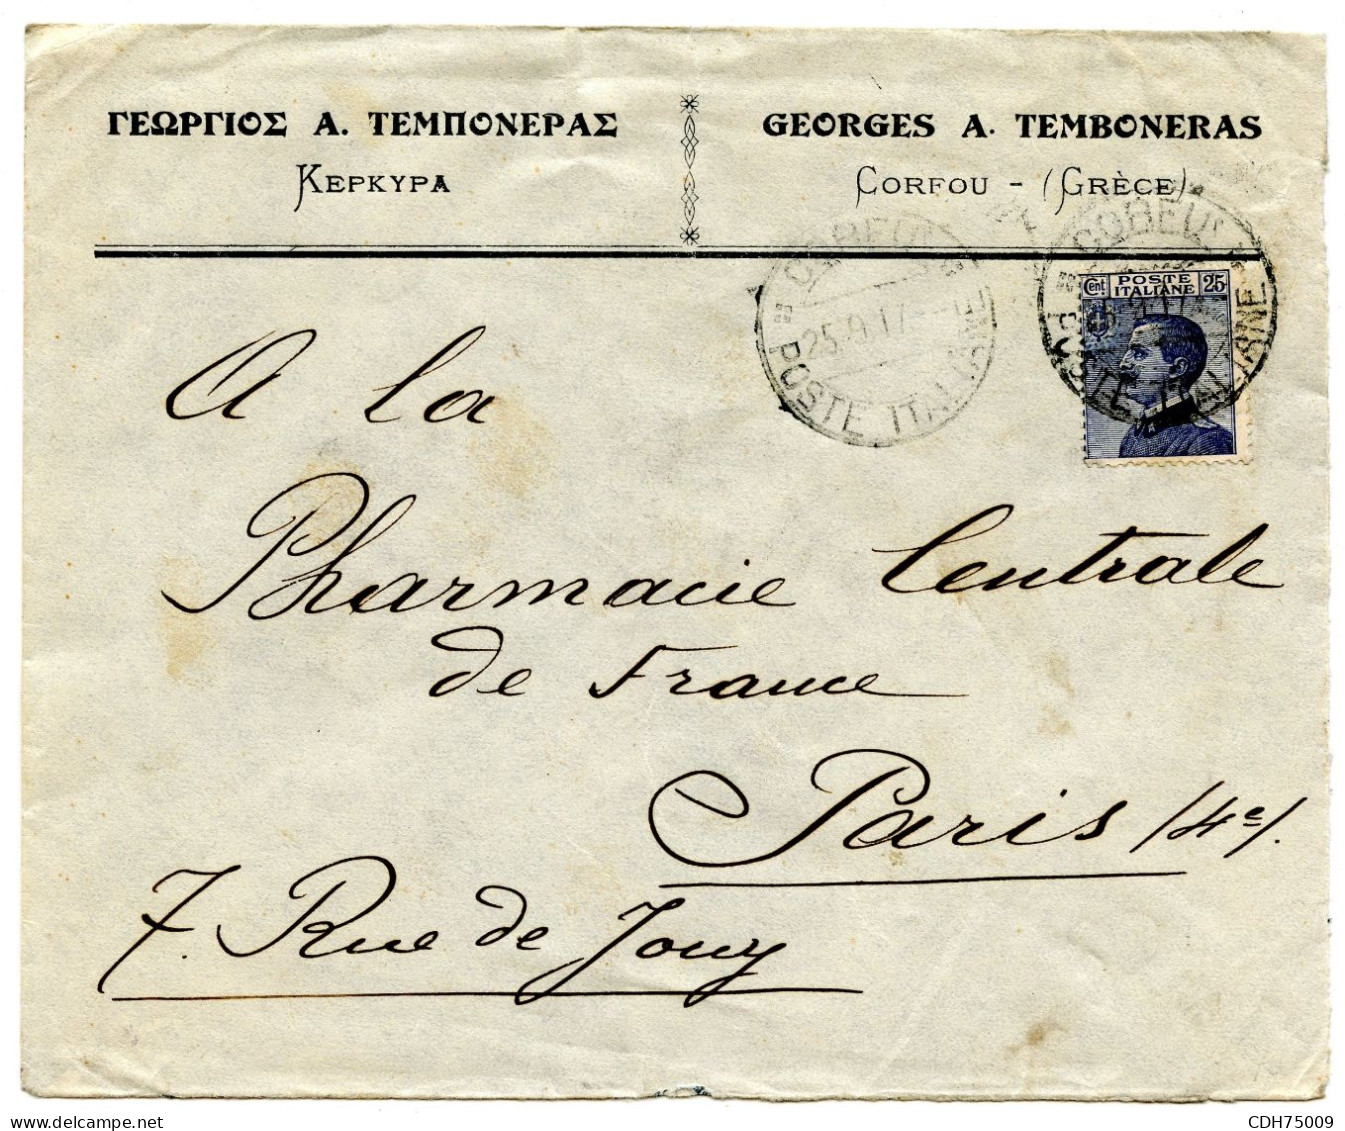 ΓΕΩΡΓΙΟΣ Α. ΤΕΜΠΟΝΕΡΑΣ
ΚΕΡΚΥΡΑ
GEORGES A. TEMBONERAS
CORFOU - (GRÈCE)
POSTE ITALIANE
25.9.17
Cent. POSTE ITALIANE 25
A la
Pharmacie Centrale
de France
Paris (4e).
7. Rue de Jouy
delcampe.net
CDH75009